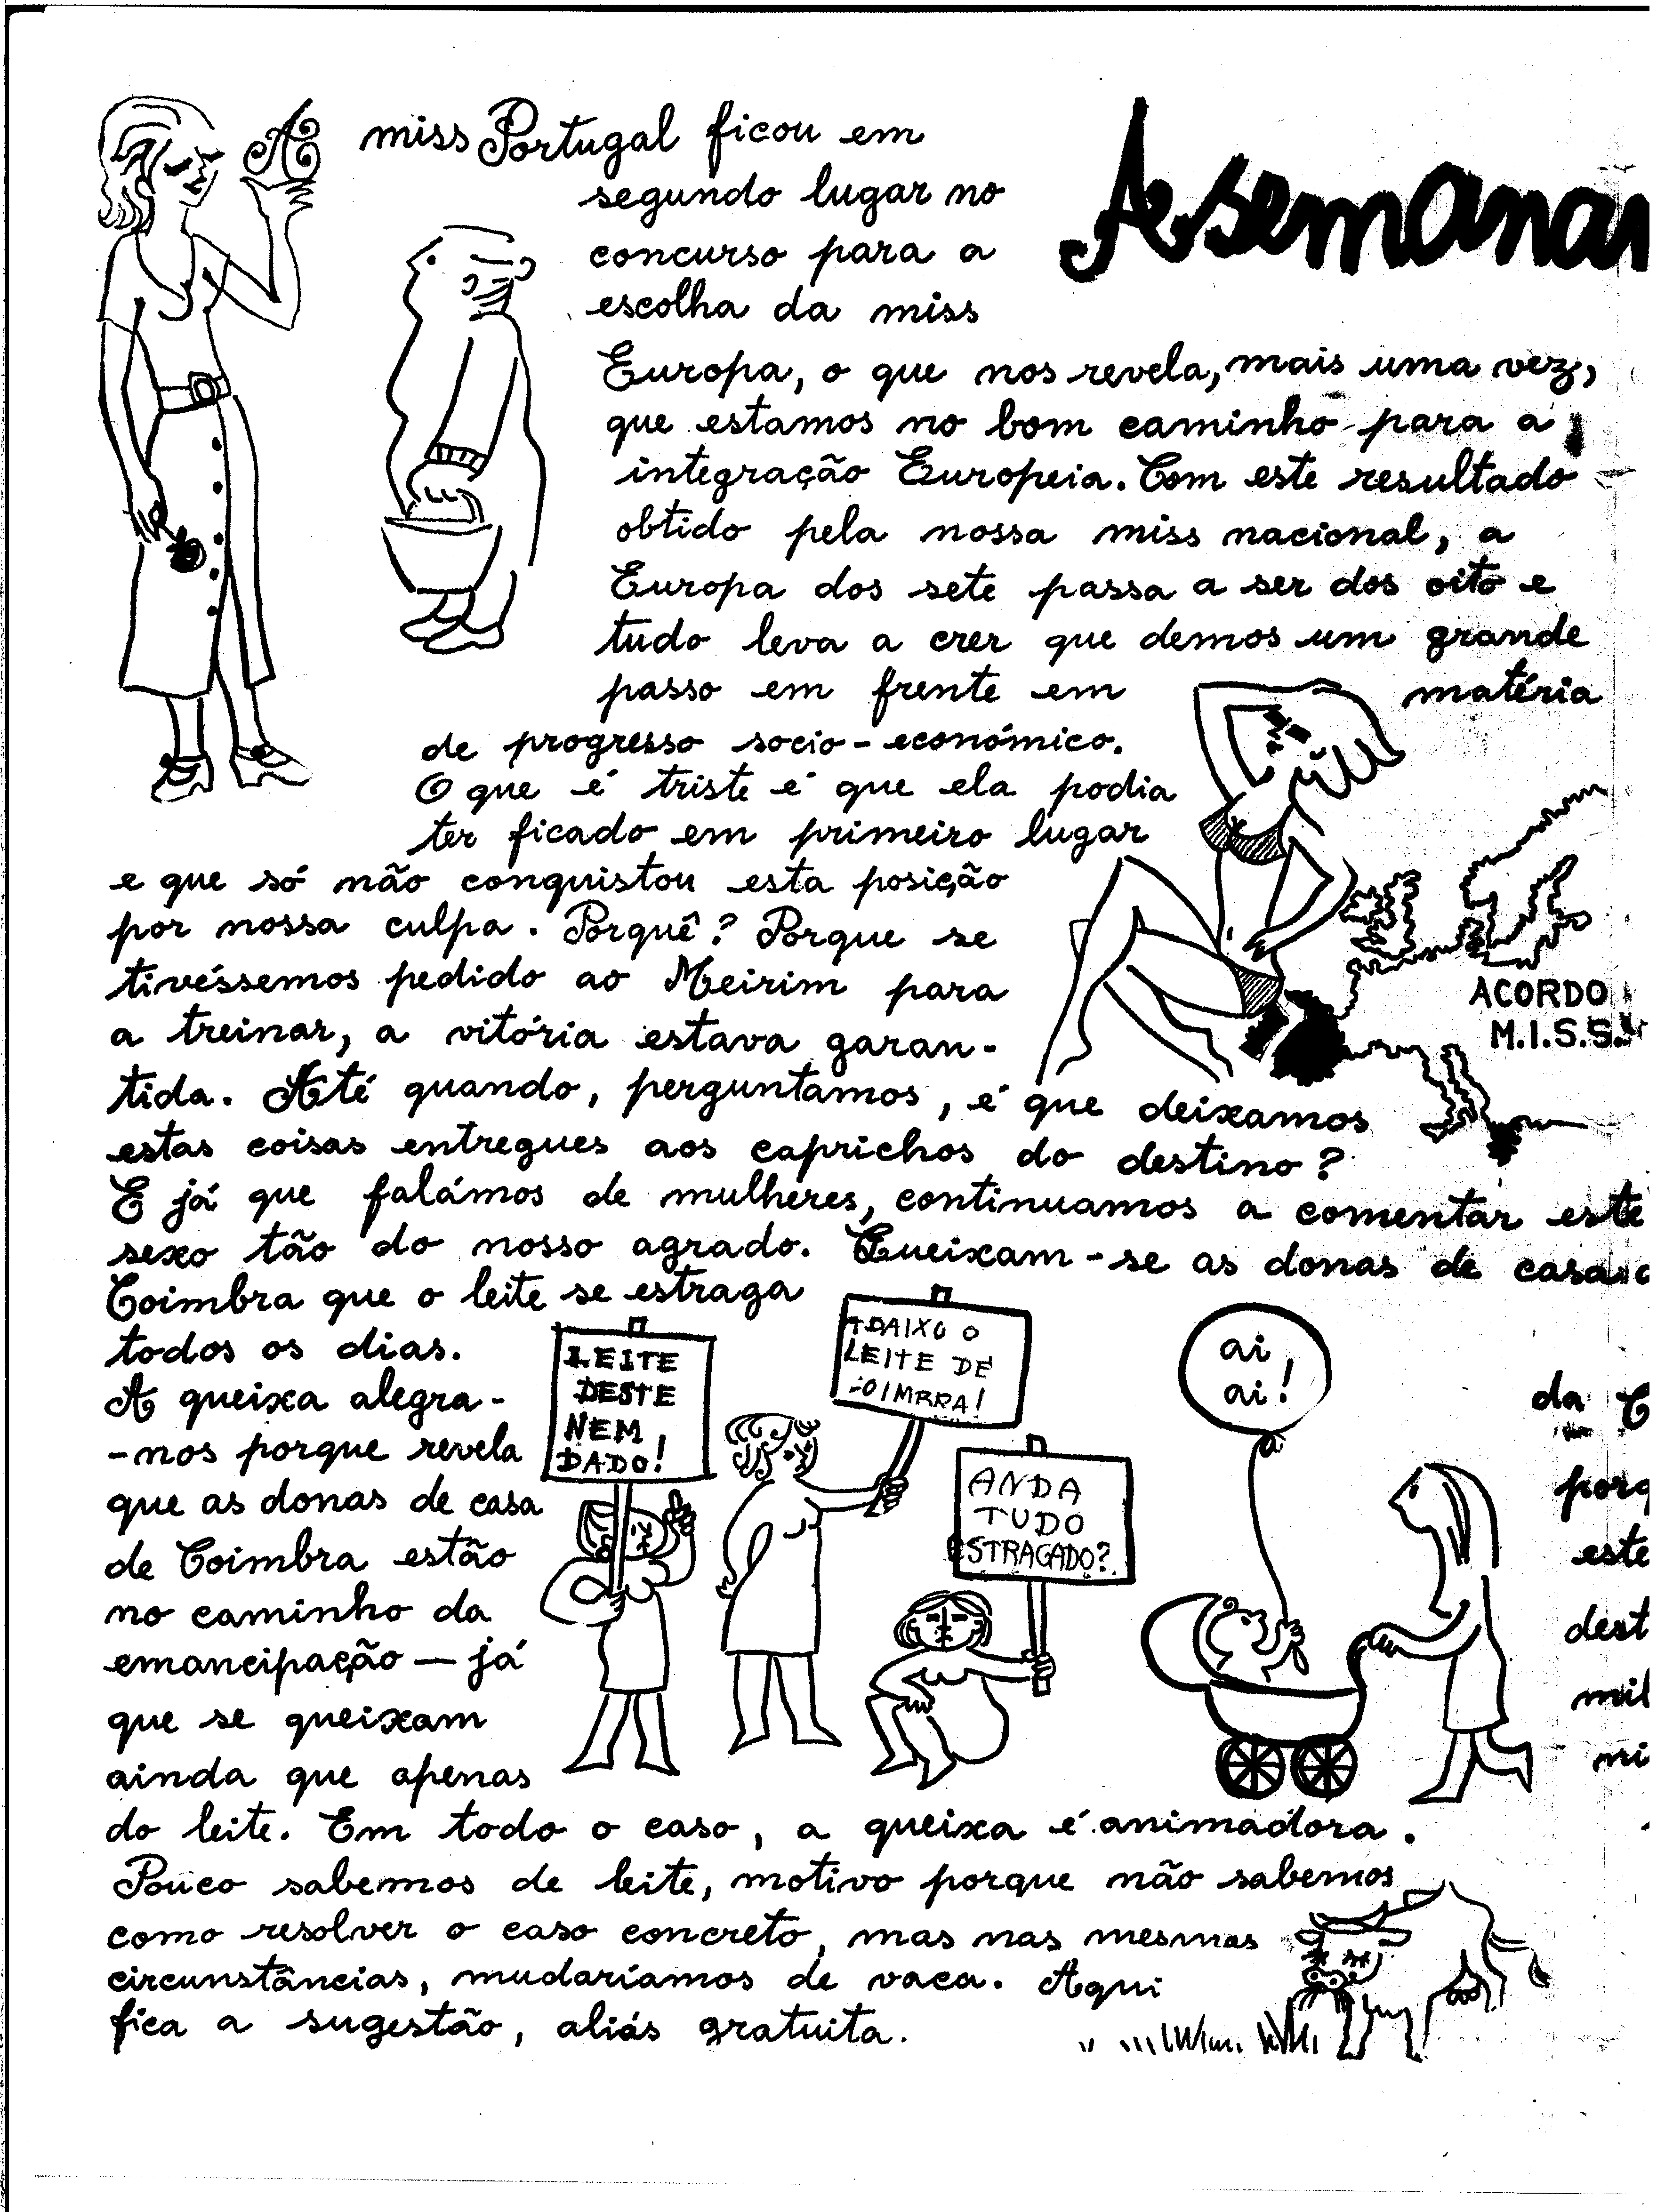 A semana
A miss Portugal ficou em
segundo lugar no
concurso para a
escolha da miss
Europa, o que nos revela, mais uma vez,
que estamos no bom caminho para a
integração Europeia. Com este resultado
obtido pela nossa miss nacional, a
Europa dos sete passa a ser dos oito e
tudo leva a crer que demos um grande
passo em frente em matéria
de progresso socio-económico.
O que é triste é que ela podia
ter ficado em primeiro lugar
e que só não conquistou esta posição
por nossa culpa. Porquê? Porque se
tivéssemos pedido ao Meirim para
a treinar, a vitória estava garan-
tida. Até quando, perguntamos, é que deixamos
estas coisas entregues aos caprichos do destino?
ACORDO
M.I.S.S.
E já que falámos de mulheres, continuamos a comentar este
sexo tão do nosso agrado. Queixam-se as donas de casa
Coimbra que o leite se estraga
todos os dias.
A queixa alegra-
-nos porque revela
que as donas de casa
de Coimbra estão
no caminho da
emancipação — já
que se queixam
ainda que apenas
do leite. Em todo o caso, a queixa é animadora.
Pouco sabemos de leite, motivo porque não sabemos
como resolver o caso concreto, mas nas mesmas
circunstâncias, mudaríamos de vaca. Aqui
fica a sugestão, aliás gratuita.
LEITE
DESTE
NEM
DADO!
ABAIXO O
LEITE DE
COIMBRA!
ANDA
TUDO
ESTRAGADO?
ai
ai!
da C
porq
este
dest
mil
mi